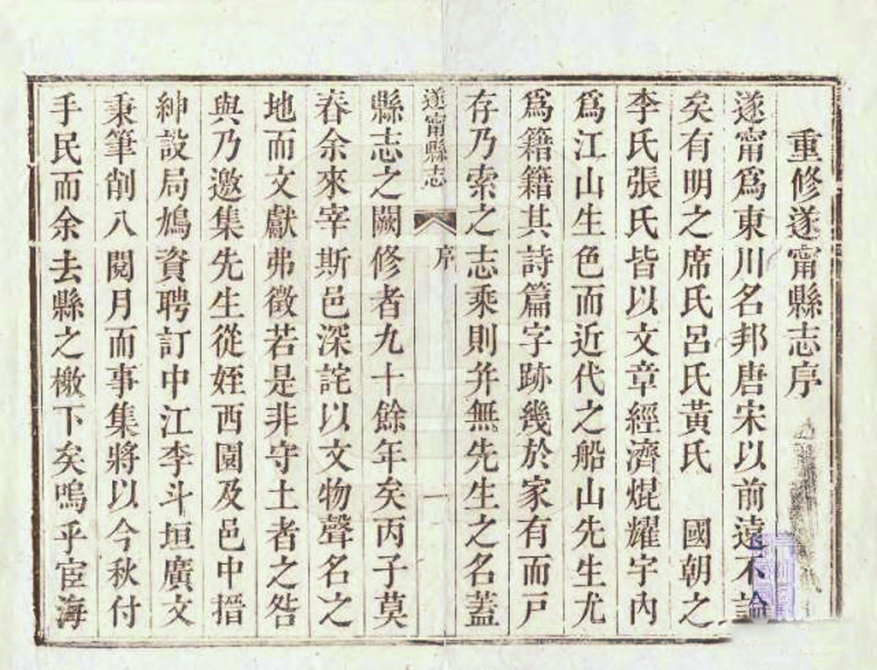 重修遂甯縣志序
遂甯為東川名邦唐宋以前遠不論
矣有明之席氏呂氏黃氏　國朝之
李氏張氏皆以文章經濟焜耀宇內
為江山生色而近代之船山先生尤
為籍籍其詩篇字跡幾於家有而戸
存乃索之志乘則幷無先生之名蓋
遂甯縣志　序　一
縣志之闕修者九十餘年矣丙子莫
春余來宰斯邑深詫以文物聲名之
地而文獻弗徵若是非守土者之咎
與乃邀集先生從姪西園及邑中搢
紳設局鳩資聘訂中江李斗垣廣文
秉筆削八閱月而事集將以今秋付
手民而余去縣之檄下矣嗚乎宦海